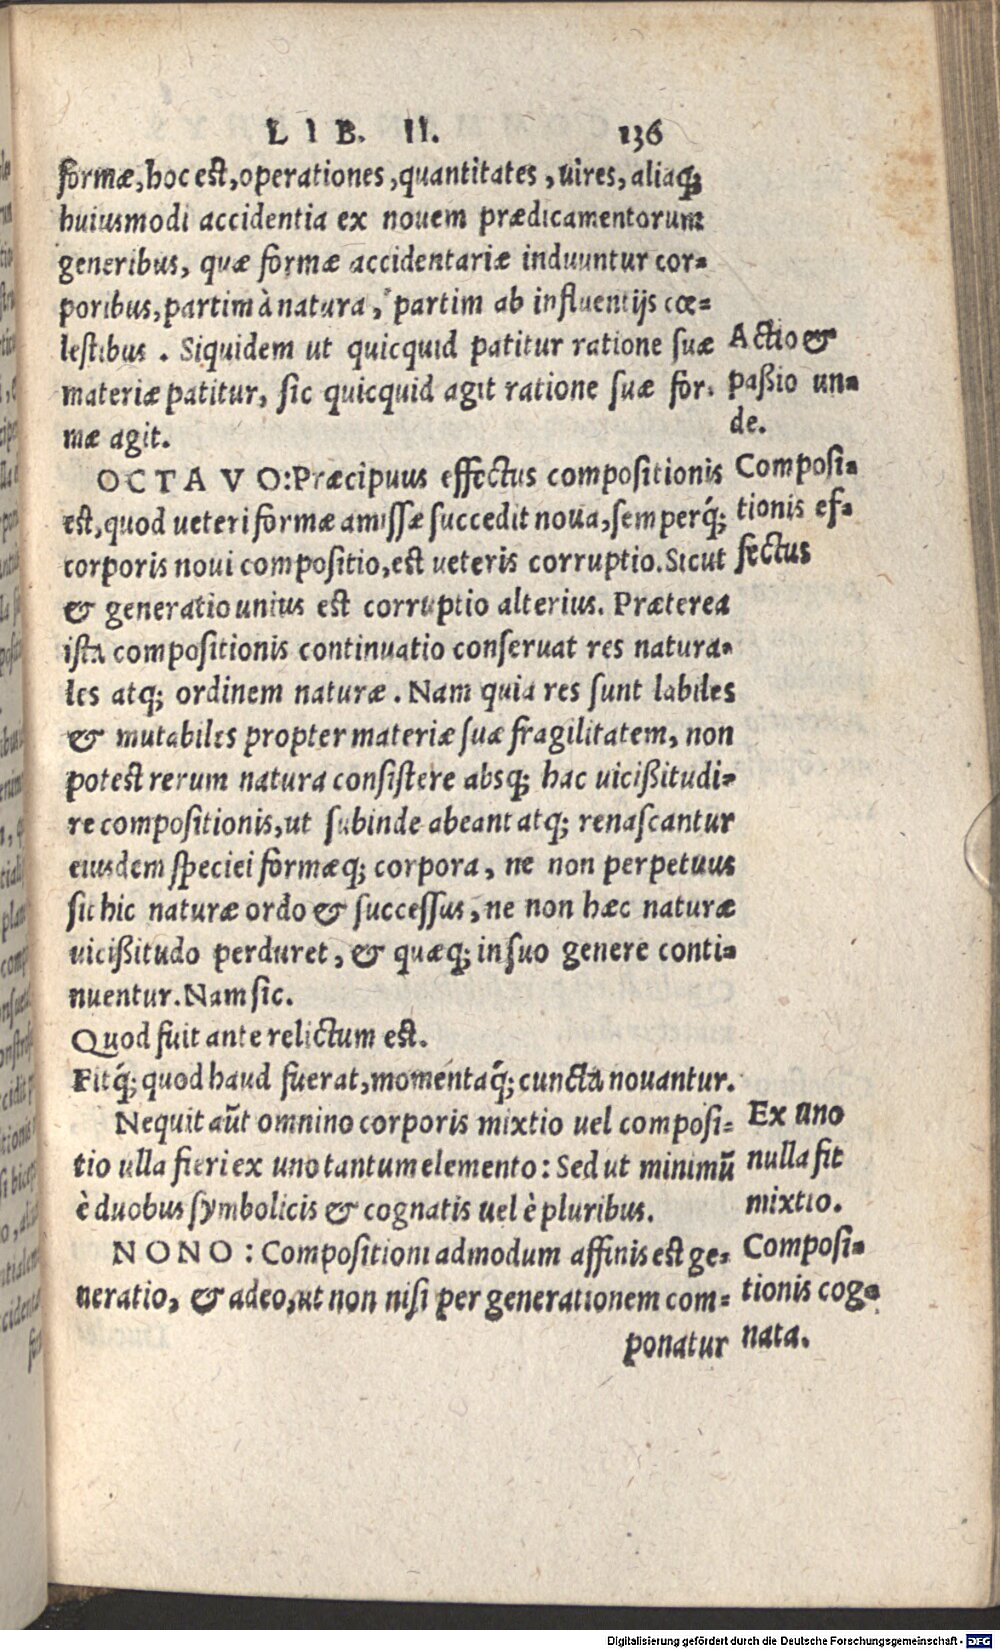 LIB. II. 136
formæ, hoc est, operationes, quantitates, uires, aliaq;
huiusmodi accidentia ex nouem prædicamentorum
generibus, quæ formæ accidentariæ induuntur cor=
poribus, partim à natura, partim ab influentijs cœ=
lestibus. Siquidem ut quicquid patitur ratione suæ
materiæ patitur, sic quicquid agit ratione suæ for.
mæ agit.
Actio &
paßio un=
de.
OCTAVO: Præcipuus effectus compositionis
est, quod ueteri formæ amissæ succedit noua, semperq́;
corporis noui compositio, est ueteris corruptio. Sicut
& generatio unius est corruptio alterius. Præterea
ista compositionis continuatio conseruat res natura=
les atq; ordinem naturæ. Nam quia res sunt labiles
& mutabiles propter materiæ suæ fragilitatem, non
potest rerum natura consistere absq; hac uicißitudi=
re compositionis, ut subinde abeant atq; renascantur
eiusdem speciei formæq; corpora, ne non perpetuus
sit hic naturæ ordo & successus, ne non hæc naturæ
uicißitudo perduret, & quæq; in suo genere conti=
nuentur. Nam sic.
Composi=
tionis ef=
fectus
Quod fuit ante relictum est.
Fitq́; quod haud fuerat, momentaq́; cuncta nouantur.
Nequit aũt omnino corporis mixtio uel composi=
tio ulla fieri ex uno tantum elemento: Sed ut minimũ
è duobus symbolicis & cognatis uel è pluribus.
Ex uno
nulla fit
mixtio.
NONO: Compositioni admodum affinis est ge=
neratio, & adeo, ut non nisi per generationem com=
ponatur
Composi=
tionis cog=
nata.
Digitalisierung gefördert durch die Deutsche Forschungsgemeinschaft - DFG